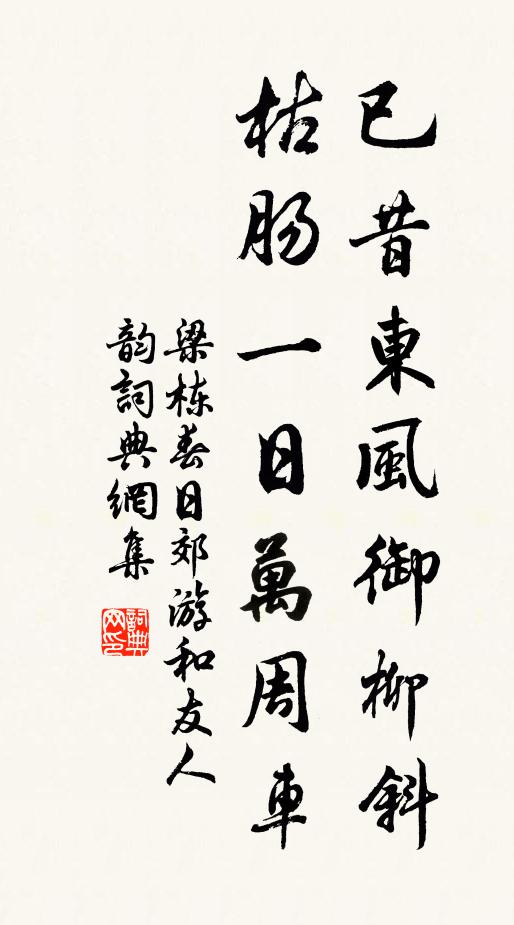 已昔東風御柳斜
枯肠一日萬周車
梁栋春日郊游和友人
韵詞典網集
詞典网印